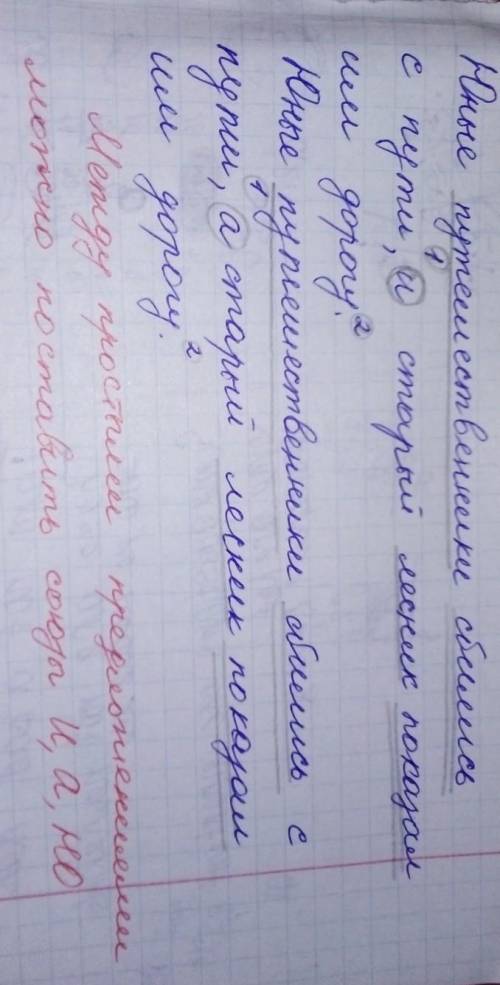 Юные путешественники сбились
с пути, и старый лесник показал
им дорогу.
Юные путешественники сбились с
пути, а старый лесник показал
им дорогу.
Между простыми предложениями
можно поставить союзы и, а, но